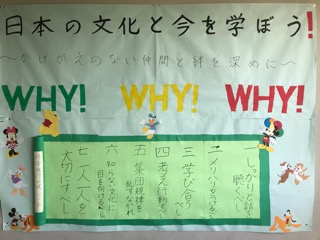 日本の文化と今を学ぼう!
〜かけがえのない仲間と絆を深めに〜
WHY! WHY! WHY!
一 しっかりと話を
聴くべし
二 メリハリをつけるべし
三 学び合うべし
四 考え行動すべし
五 集団規律を
乱すなかれ
六 知らない文化に
目を向けるべし
七 一人一人を
大切にすべし